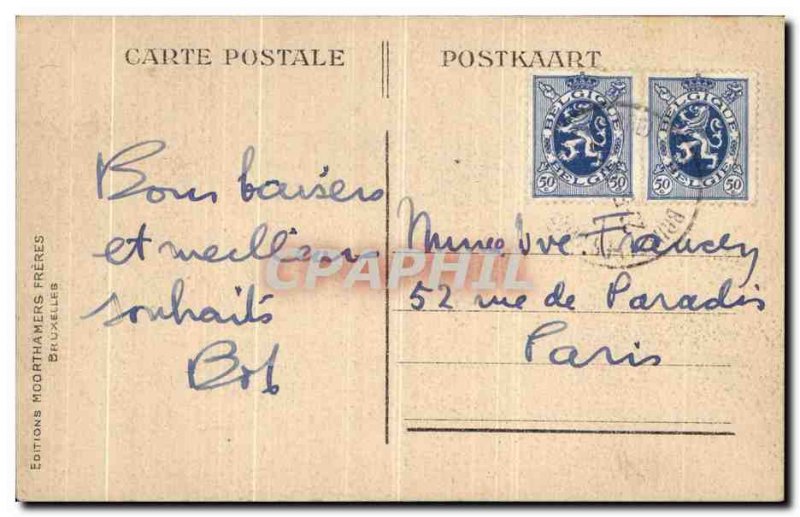 CARTE POSTALE
POSTKAART
BELGIQUE
BELGIË
50 50
BELGIQUE
BELGIË
50 50
Bons baisers
et meilleurs
souhaits
Bob
Mme Vve Francey
52 rue de Paradis
Paris
CPAPHIL
EDITIONS MOORTHAMERS FRÈRES
BRUXELLES